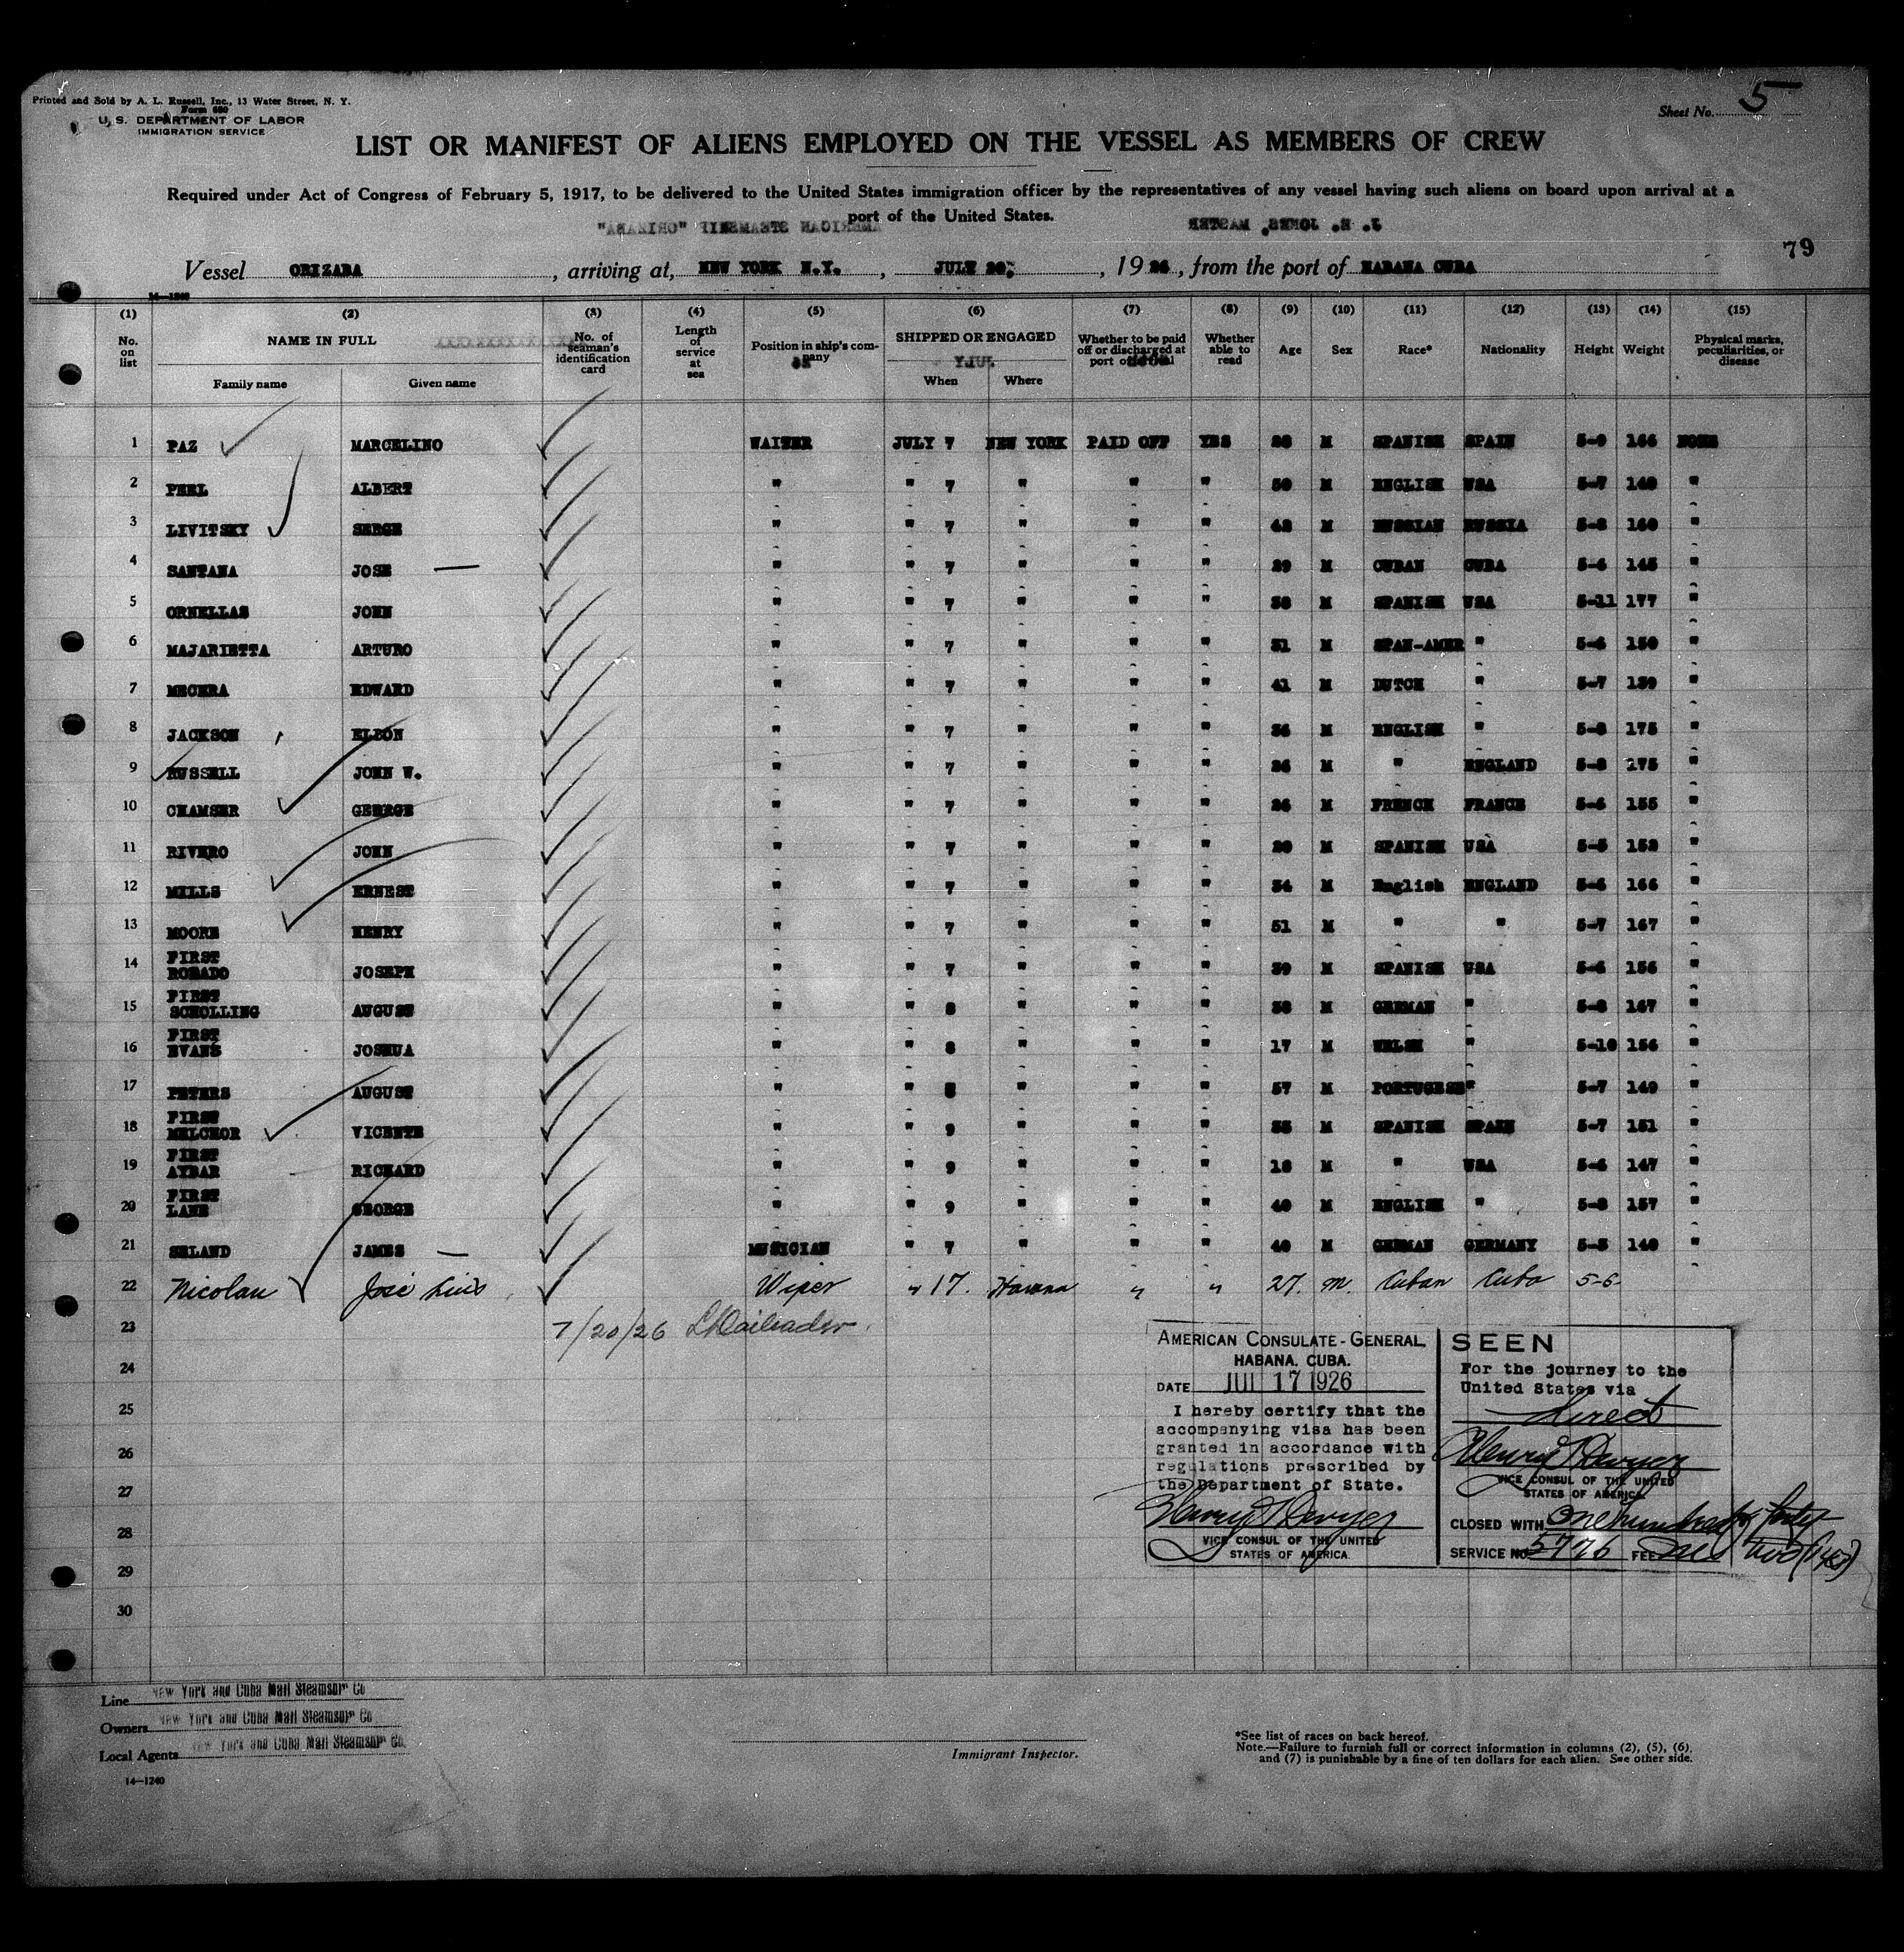 Printed and Sold by A. L. Russell, Inc., 13 Water Street, N. Y.
Form 680
U. S. DEPARTMENT OF LABOR
IMMIGRATION SERVICE
Sheet No. 5
LIST OR MANIFEST OF ALIENS EMPLOYED ON THE VESSEL AS MEMBERS OF CREW
Required under Act of Congress of February 5, 1917, to be delivered to the United States immigration officer by the representatives of any vessel having such aliens on board upon arrival at a
port of the United States.
AMERICAN STEAMSHIP "ORIZABA" J. E. JONES, MASTER
79
Vessel ORIZABA, arriving at, NEW YORK N.Y., JULY 20, 1926, from the port of HABANA CUBA
14-1240
(1) (2) (3) (4) (5) (6) (7) (8) (9) (10) (11) (12) (13) (14) (15)
No. on list NAME IN FULL Family name Given name No. of seaman's identification card Length of service at sea Position in ship's company SHIPPED OR ENGAGED When Where Whether to be paid off or discharged at port of arrival Whether able to read Age Sex Race* Nationality Height Weight Physical marks, peculiarities, or disease
JULY
1 PAZ MARCELINO WAITER JULY 7 NEW YORK PAID OFF YES M SPANISH SPAIN 5-9 166 NONE
2 PEEL ALBERT " " 7 " " " 50 M ENGLISH USA 5-7 "
3 LIVITSKY SERGE " " 7 " " " M RUSSIAN RUSSIA 5-8 160 "
4 SANTANA JOSE — " " 7 " " " 29 M CUBAN CUBA 5-6 145 "
5 ORNELLAS JOHN " " 7 " " " M SPANISH USA 5-11 177 "
6 MAJARIETTA ARTURO " " 7 " " " 31 M SPAN-AMER " 5-6 150 "
7 MECERA EDWARD " " 7 " " " 41 M DUTCH " 5-7 139 "
8 JACKSON ELDON " " 7 " " " 36 M ENGLISH " 5-8 175 "
9 RUSSELL JOHN W. " " 7 " " " 26 M " ENGLAND 5-8 175 "
10 CHAMSER GEORGE " " 7 " " " 26 M FRENCH FRANCE 5-6 155 "
11 RIVERO JOHN " " 7 " " " M SPANISH USA 5-5 "
12 MILLS ERNEST " " 7 " " " 34 M English ENGLAND 5-6 166 "
13 MOORE HENRY " " 7 " " " 51 M " " 5-7 167 "
14 FIRST ROSADO JOSEPH " " 7 " " " 39 M SPANISH USA 5-6 156 "
15 FIRST SCHOLLING AUGUST " " 8 " " " 38 M GERMAN " 5-8 167 "
16 FIRST EVANS JOSHUA " " 8 " " " 17 M WELSH " 5-10 156 "
17 PETERS AUGUST " " 8 " " " 57 M PORTUGESE " 5-7 149 "
18 FIRST MELCHOR VICENTE " " 9 " " " M SPANISH SPAIN 5-7 151 "
19 FIRST AYBAR RICHARD " " 9 " " " 18 M " USA 5-6 147 "
20 FIRST LANE GEORGE " " 9 " " " 40 M ENGLISH " 5-8 157 "
21 SELAND JAMES — MUSICIAN " 7 " " " 40 M GERMAN GERMANY 5-5 140 "
22 Nicolau José Luis Wiper " 17. Havana " " 27. m. Cuban Cuba 5-6
23 7/20/26
24
25
26
27
28
29
30
AMERICAN CONSULATE-GENERAL
HABANA, CUBA.
DATE JUL 17 1926
I hereby certify that the
accompanying visa has been
granted in accordance with
regulations prescribed by
the Department of State.
Henry T Dwyer
VICE CONSUL OF THE UNITED
STATES OF AMERICA
SEEN
For the journey to the
United States via
direct
Henry T Dwyer
VICE CONSUL OF THE UNITED
STATES OF AMERICA
CLOSED WITH One hundred & forty
two (142)
SERVICE No 5776 FEE
Line New York and Cuba Mail Steamship Co
Owners New York and Cuba Mail Steamship Co
Local Agents New York and Cuba Mail Steamship Co.
14-1240
Immigrant Inspector.
*See list of races on back hereof.
Note.—Failure to furnish full or correct information in columns (2), (5), (6),
and (7) is punishable by a fine of ten dollars for each alien. See other side.